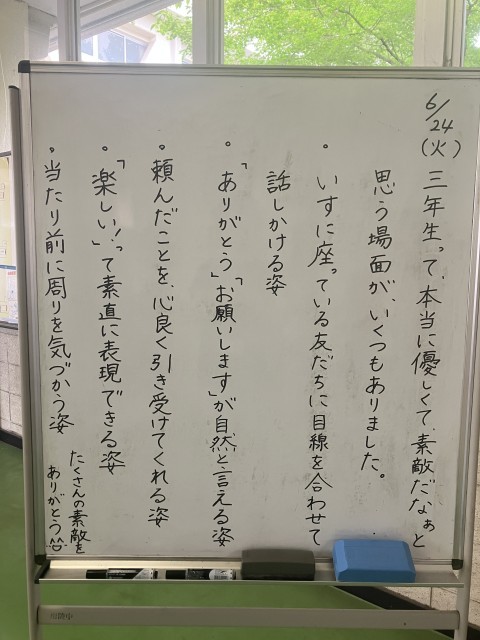 6/24(火)
三年生って、本当に優しくて、素敵だなぁと
思う場面が、いくつもありました。
・いすに座っている友だちに目線を合わせて
話しかける姿
・「ありがとう」「お願いします」が自然と言える姿
・頼んだことを、心良く引き受けてくれる姿
・「楽しい!」って素直に表現できる姿
・当たり前に周りを気づかう姿
たくさんの素敵を
ありがとう